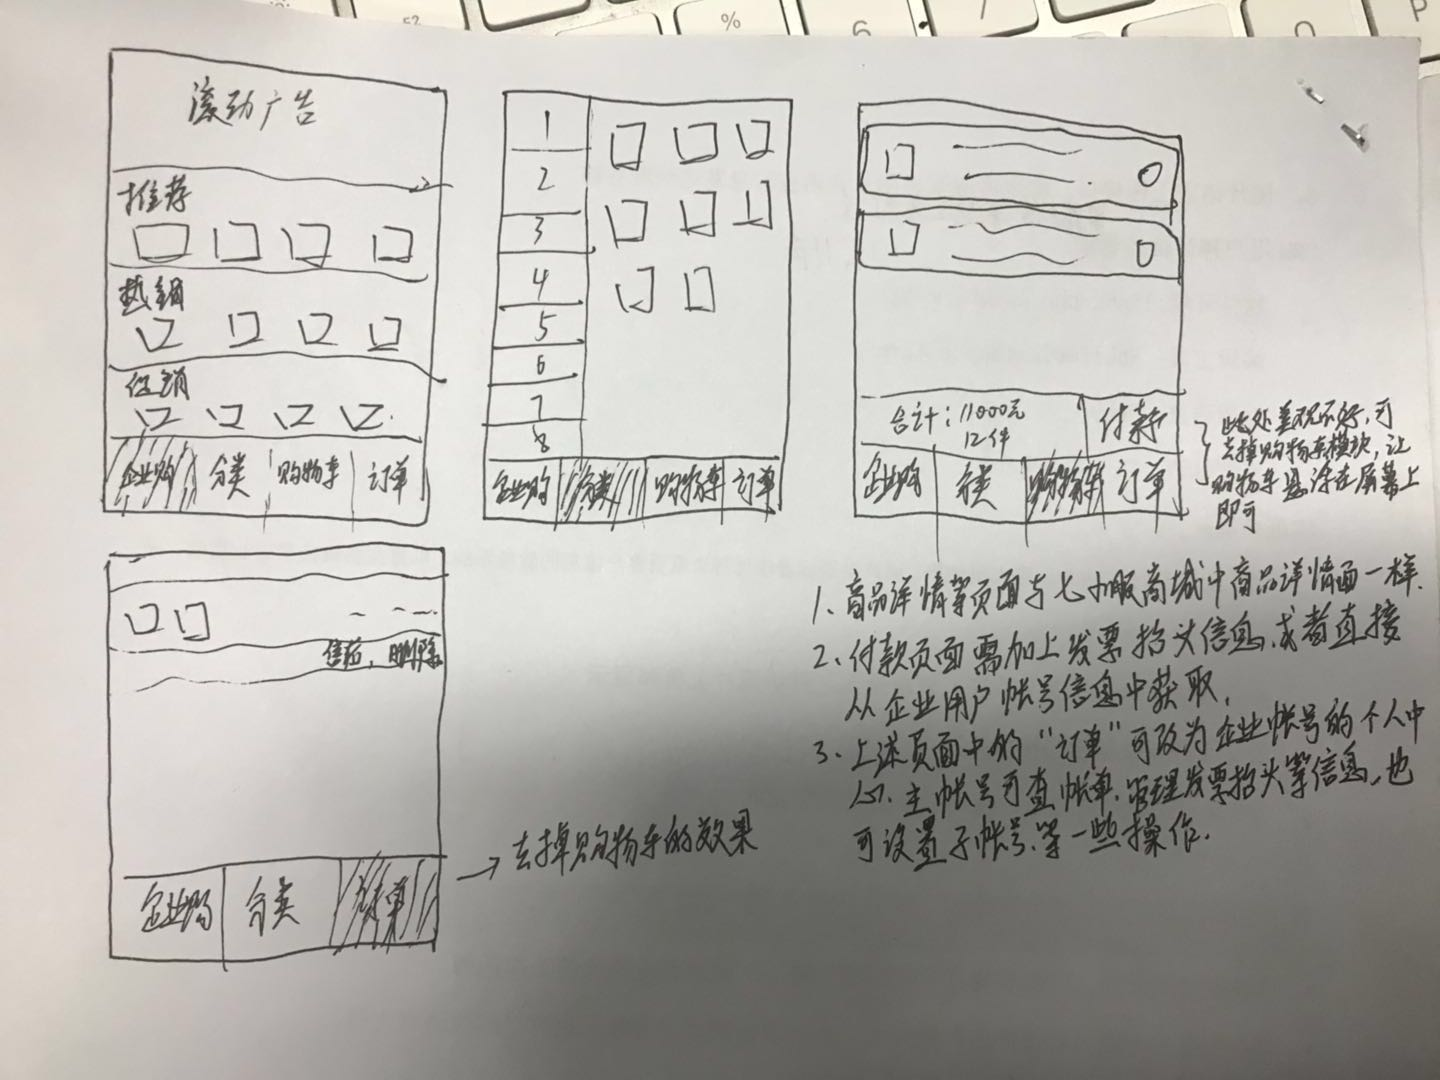 滚动广告
推荐
热销
促销
企业购 分类 购物车 订单
1
2
3
4
5
6
7
8
企业购 分类 购物车 订单
合计：11000元
12件
付款
企业购 分类 购物车 订单
此处美观不好，可
去掉购物车模块，让
购物车悬浮在屏幕上
即可
售后，删除
企业购 分类 订单
→去掉购物车的效果
1、商品详情等页面与七小服商城中商品详情面一样.
2、付款页面需加上发票抬头信息，或者直接
从企业用户帐号信息中获取，
3、上述页面中的“订单”可改为企业帐号的个人中
心，主帐号可查帐单，管理发票抬头等信息，也
可设置子帐号、等一些操作.
%
P